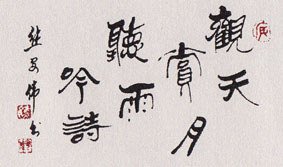 觀天
賞月
聽雨
吟詩